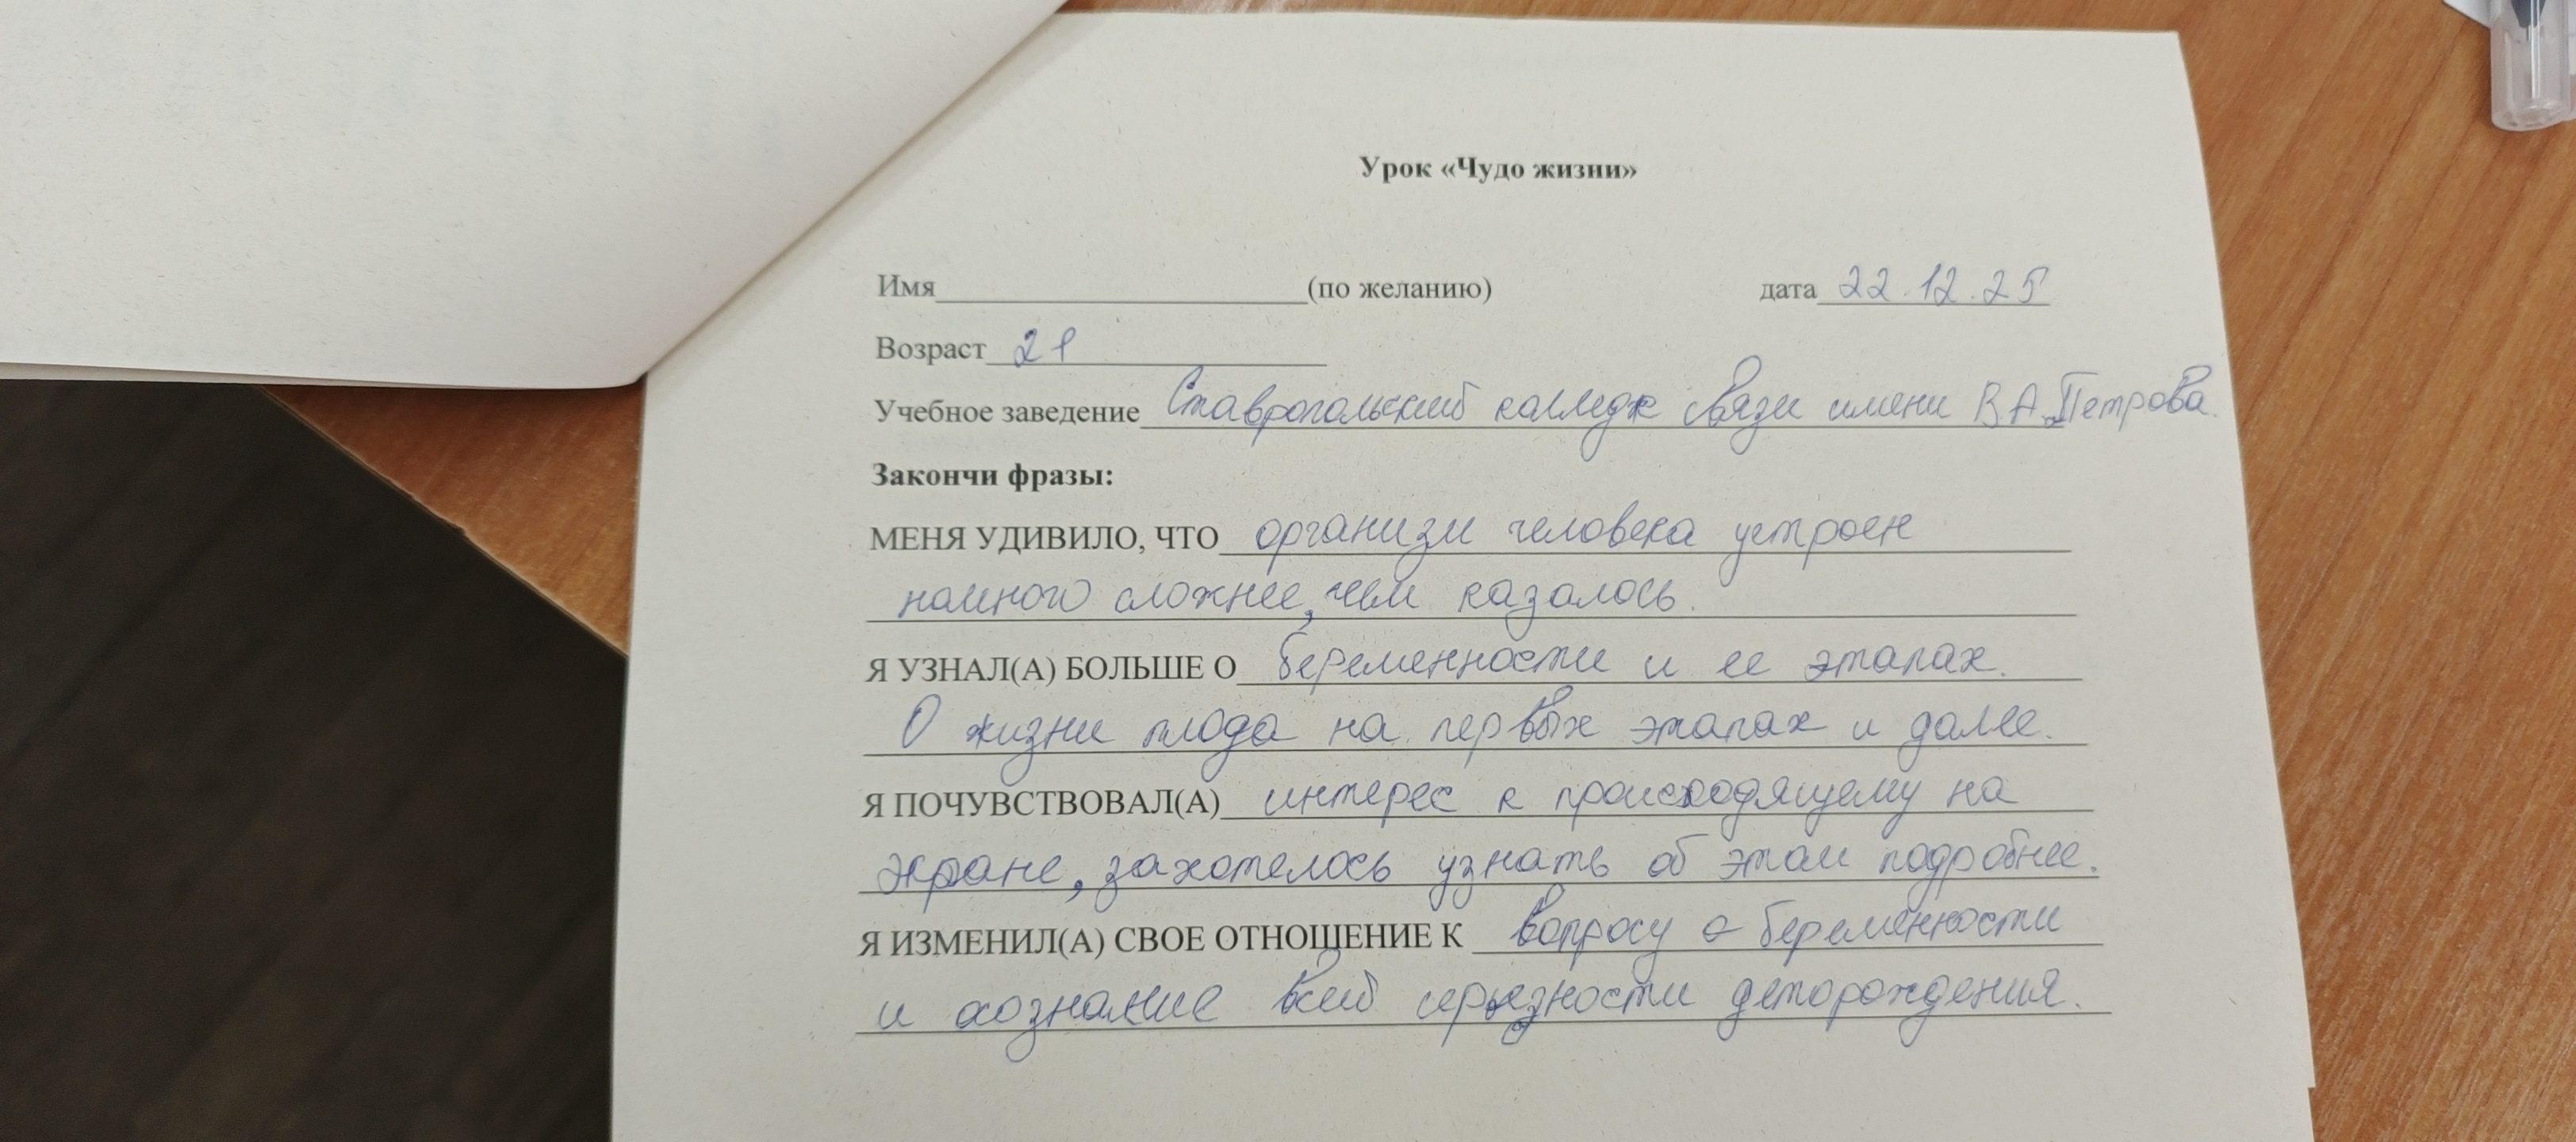 Урок «Чудо жизни»
Имя____________(по желанию) дата 22.12.25
Возраст 21
Учебное заведение Ставропольский колледж связи имени В.А.Петрова.
Закончи фразы:
МЕНЯ УДИВИЛО, ЧТО организм человека устроен
намного сложнее, чем казалось.
Я УЗНАЛ(А) БОЛЬШЕ О беременности и ее этапах.
О жизни плода на первых этапах и далее.
Я ПОЧУВСТВОВАЛ(А) интерес к происходящему на
экране, захотелось узнать об этом подробнее.
Я ИЗМЕНИЛ(А) СВОЕ ОТНОШЕНИЕ К вопросу о беременности
и осознание всей серьезности деторождения.